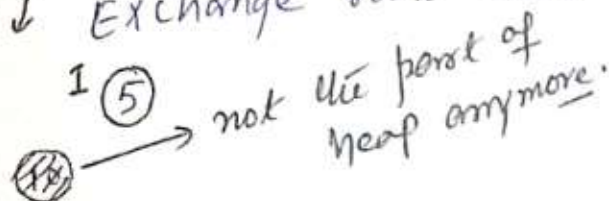 ↓ Exchange
1 5 → not the part of
heap anymore.